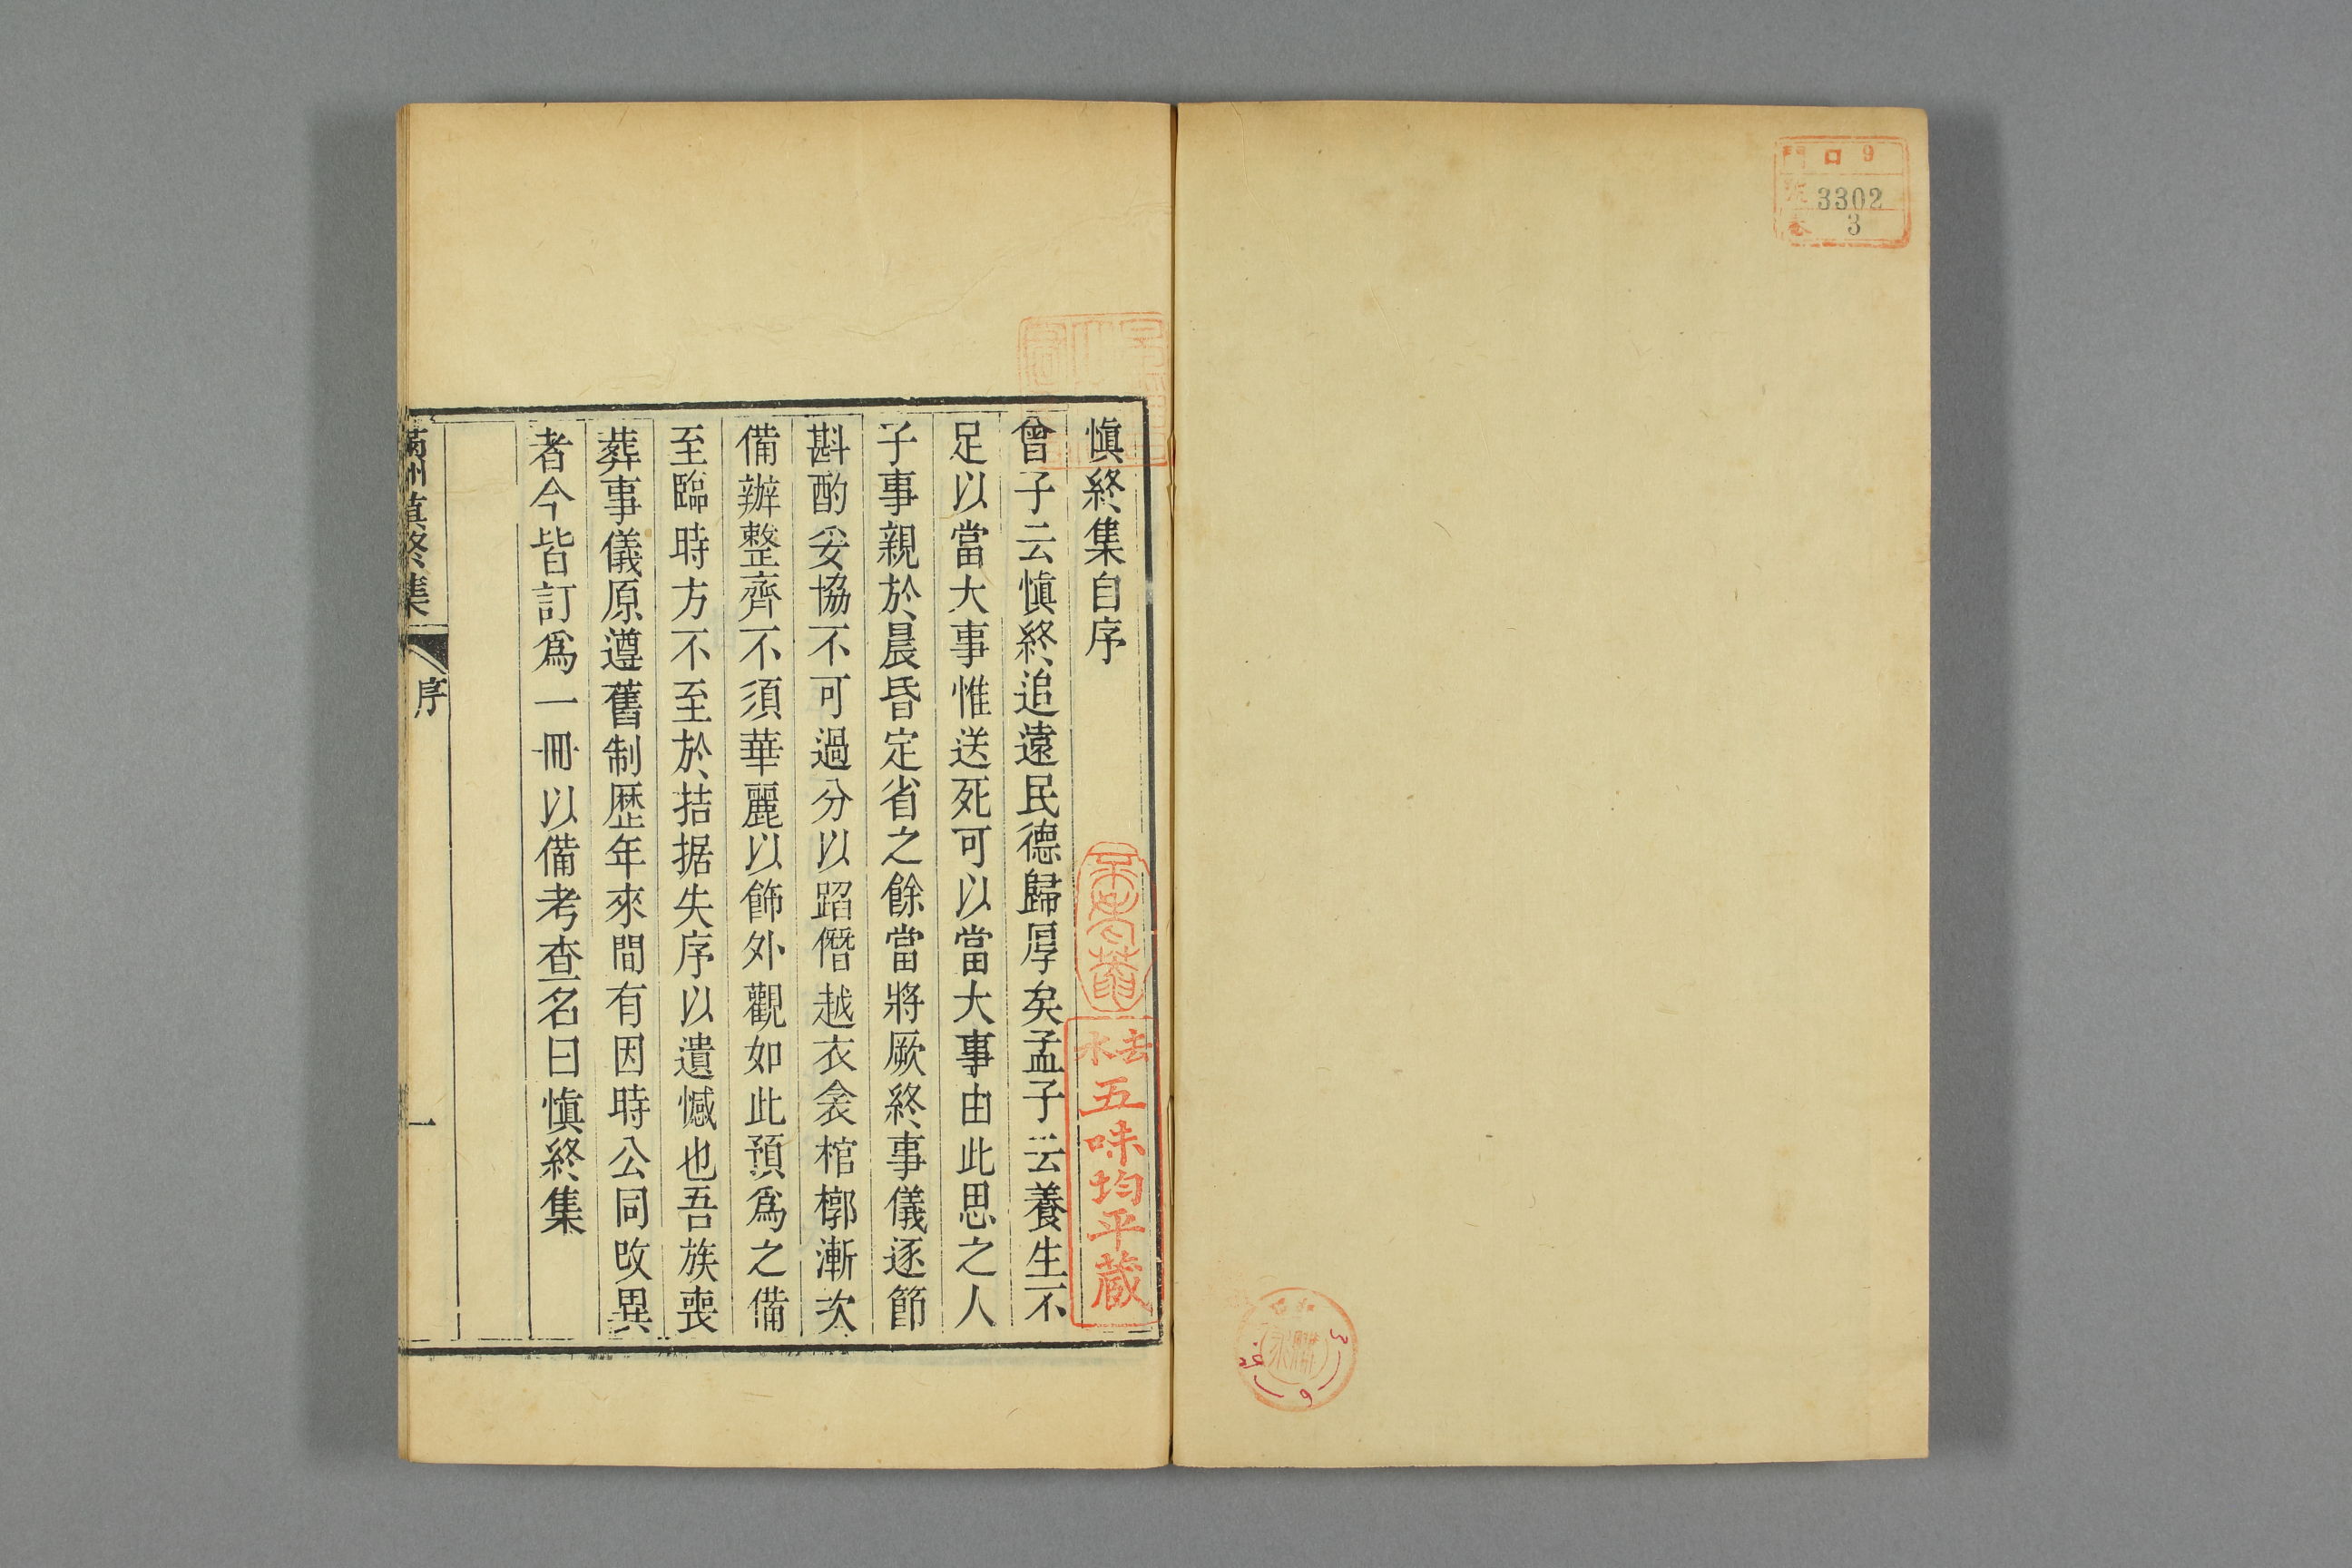 門 口 9
號 3302
卷 3
愼終集自序
曾子云愼終追遠民德歸厚矣孟子云養生不
足以當大事惟送死可以當大事由此思之人
子事親於晨昏定省之餘當將厥終事儀逐節
斟酌妥協不可過分以蹈僭越衣衾棺槨漸次
備辦整齊不須華麗以飾外觀如此預爲之備
至臨時方不至於拮据失序以遺憾也吾族喪
葬事儀原遵舊制歷年來間有因時公同改異
者今皆訂爲一冊以備考查名曰愼終集
滿洲慎終集
序
一
五味均平蔵